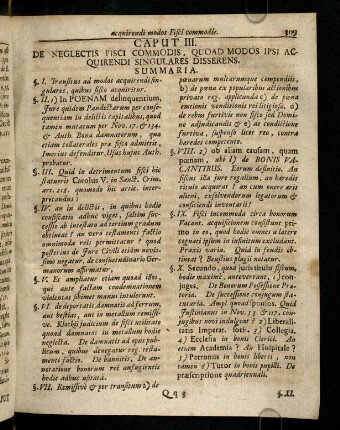 acquirendi modos Fisci commodis. 309
CAPUT III.
DE NEGLECTIS FISCI COMMODIS, QUOAD MODOS IPSI AC-
QUIRENDI SINGULARES DISSERENS.
SUMMARIA.
§. I. Transitus ad modos acquirendi sin-
gulares, quibus fisco acquiritur.
§. II. 1) In POENAM delinquentium,
Jure quidem Pandectarum per conse-
quentiam in delictis capitalibus, quod
tamen mutatum per Nov. 17. & 134.
& Auth. Bona damnatorum, qua
etiam collaterales præ fisco admittit,
Imerius defenditur. Usus hujus Auth.
probatur.
§. III. Quid in detrimentum fisci hic
statueris Carolus V. in Sanct. Crim.
art. 218. quomodo hic artic. inter-
pretandus?
§. IV. an in delictis, in quibus hodie
confiscatio adhuc viget, saltim suc-
cessio ab intestato ad tertium gradum
obtineat? an vero testamenti factio
omnimoda reis permittatur? quod
posterius de Jure Civili etiam novis-
simo negatur, de consuetudinario Ger-
manorum affirmatur.
§. V. Et ampliatur etiam quoad illos,
qui ante factam condemnationem
violentas sibimet manus intulerunt.
§. VI. de deportatis, damnatis ad ferrum,
aut bestias, aut in metallum remissi-
ve. Klockii judicium de fisci utilitate
quoad damnatos in metallum hodie
neglecta. De damnatis ad opus pub-
licum, quibus denegatur reg. testa-
menti factio. De bannitis, De an-
notatione bonorum rei aufugientis
hodie adhuc usitata.
§. VII. Remissive & per transitum a) de
pœnarum multarumque compendiis,
b) de pœna ex popularibus actionibus
privato reg. applicanda c) de pœna
emtionis venditionis rei litigiosæ. d)
de rebus furtivis non fisco sed Domi-
no adjudicandis & e) de condictione
furtiva, suspenso licet reo, contra
hæredes competente.
§. VIII. 2) ob aliam causam, quam
pœnam, ubi 1) de BONIS VA-
CANTIBUS. Eorum definitio. An
fiscus ista jure regalium, an hæredi-
tario acquirat? an cum onere æris
alieni, exsolvendorum legatorum &
conficiendi inventarii?
§. IX. Fisci incommoda circa bonorum
Vacant. acquisitionem consistunt pri-
mo in eo, quod hodie omnes a latere
cognati ipsum in infinitum excludant.
Praxis varia. Quid in feudis ob-
tineat? Beustius plagii notatur.
§. X. Secundo, quod juris titulo ipsum,
hodie maxime, antevertant, 1) con-
juges, De Bonorum Possessione Præ-
toria. De successione conjugum sta-
tutaria. Ampl. quoad sponsos. Quid
Justinianus in Nov. 53. & 117. con-
jugibus novi indulgeat? 2) Liberali-
tatis Imperat. socii. 3) Collegia.
4) Ecclesia in bonis Clerici. An
etiam Academia? An Hospitale?
5) Patronus in bonis liberti, non
tamen 6) Tutor in bonis pupilli. De
præscriptione quadriennali.
Qq 3 §. XI.